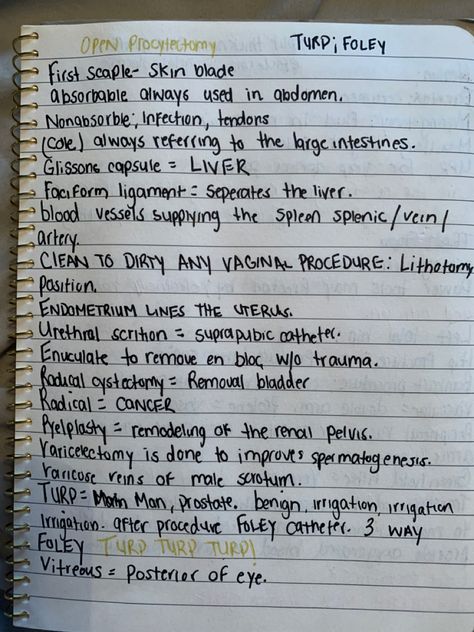 OPEN Procylectomy TURP; FOLEY
First scaple- Skin blade
absorbable always used in abdomen.
Nonabsorble; Infection, tendons
(cole) always referring to the large intestines.
Glissons capsule = LIVER
Faciform ligament = Seperates the liver.
blood vessels supplying the spleen splenic/vein/
artery.
CLEAN TO DIRTY ANY VAGINAL PROCEDURE: Lithotomy
Position.
ENDOMETRIUM LINES THE UTERUS.
Urethral scrition = suprapubic catheter.
Enuculate to remove en bloc w/o trauma.
Radical cystectomy = Removal bladder
Radical = CANCER
Pyelplasty = remodeling of the renal pelvis.
Varicelectomy is done to improves spermatogenesis.
Varicose veins of male scrotum.
TURP = Man, prostate. benign, irrigation, irrigation
Irrigation. after procedure FOLEY catheter. 3 WAY
FOLEY TURP TURP TURP!
Vitreous = Posterior of eye.